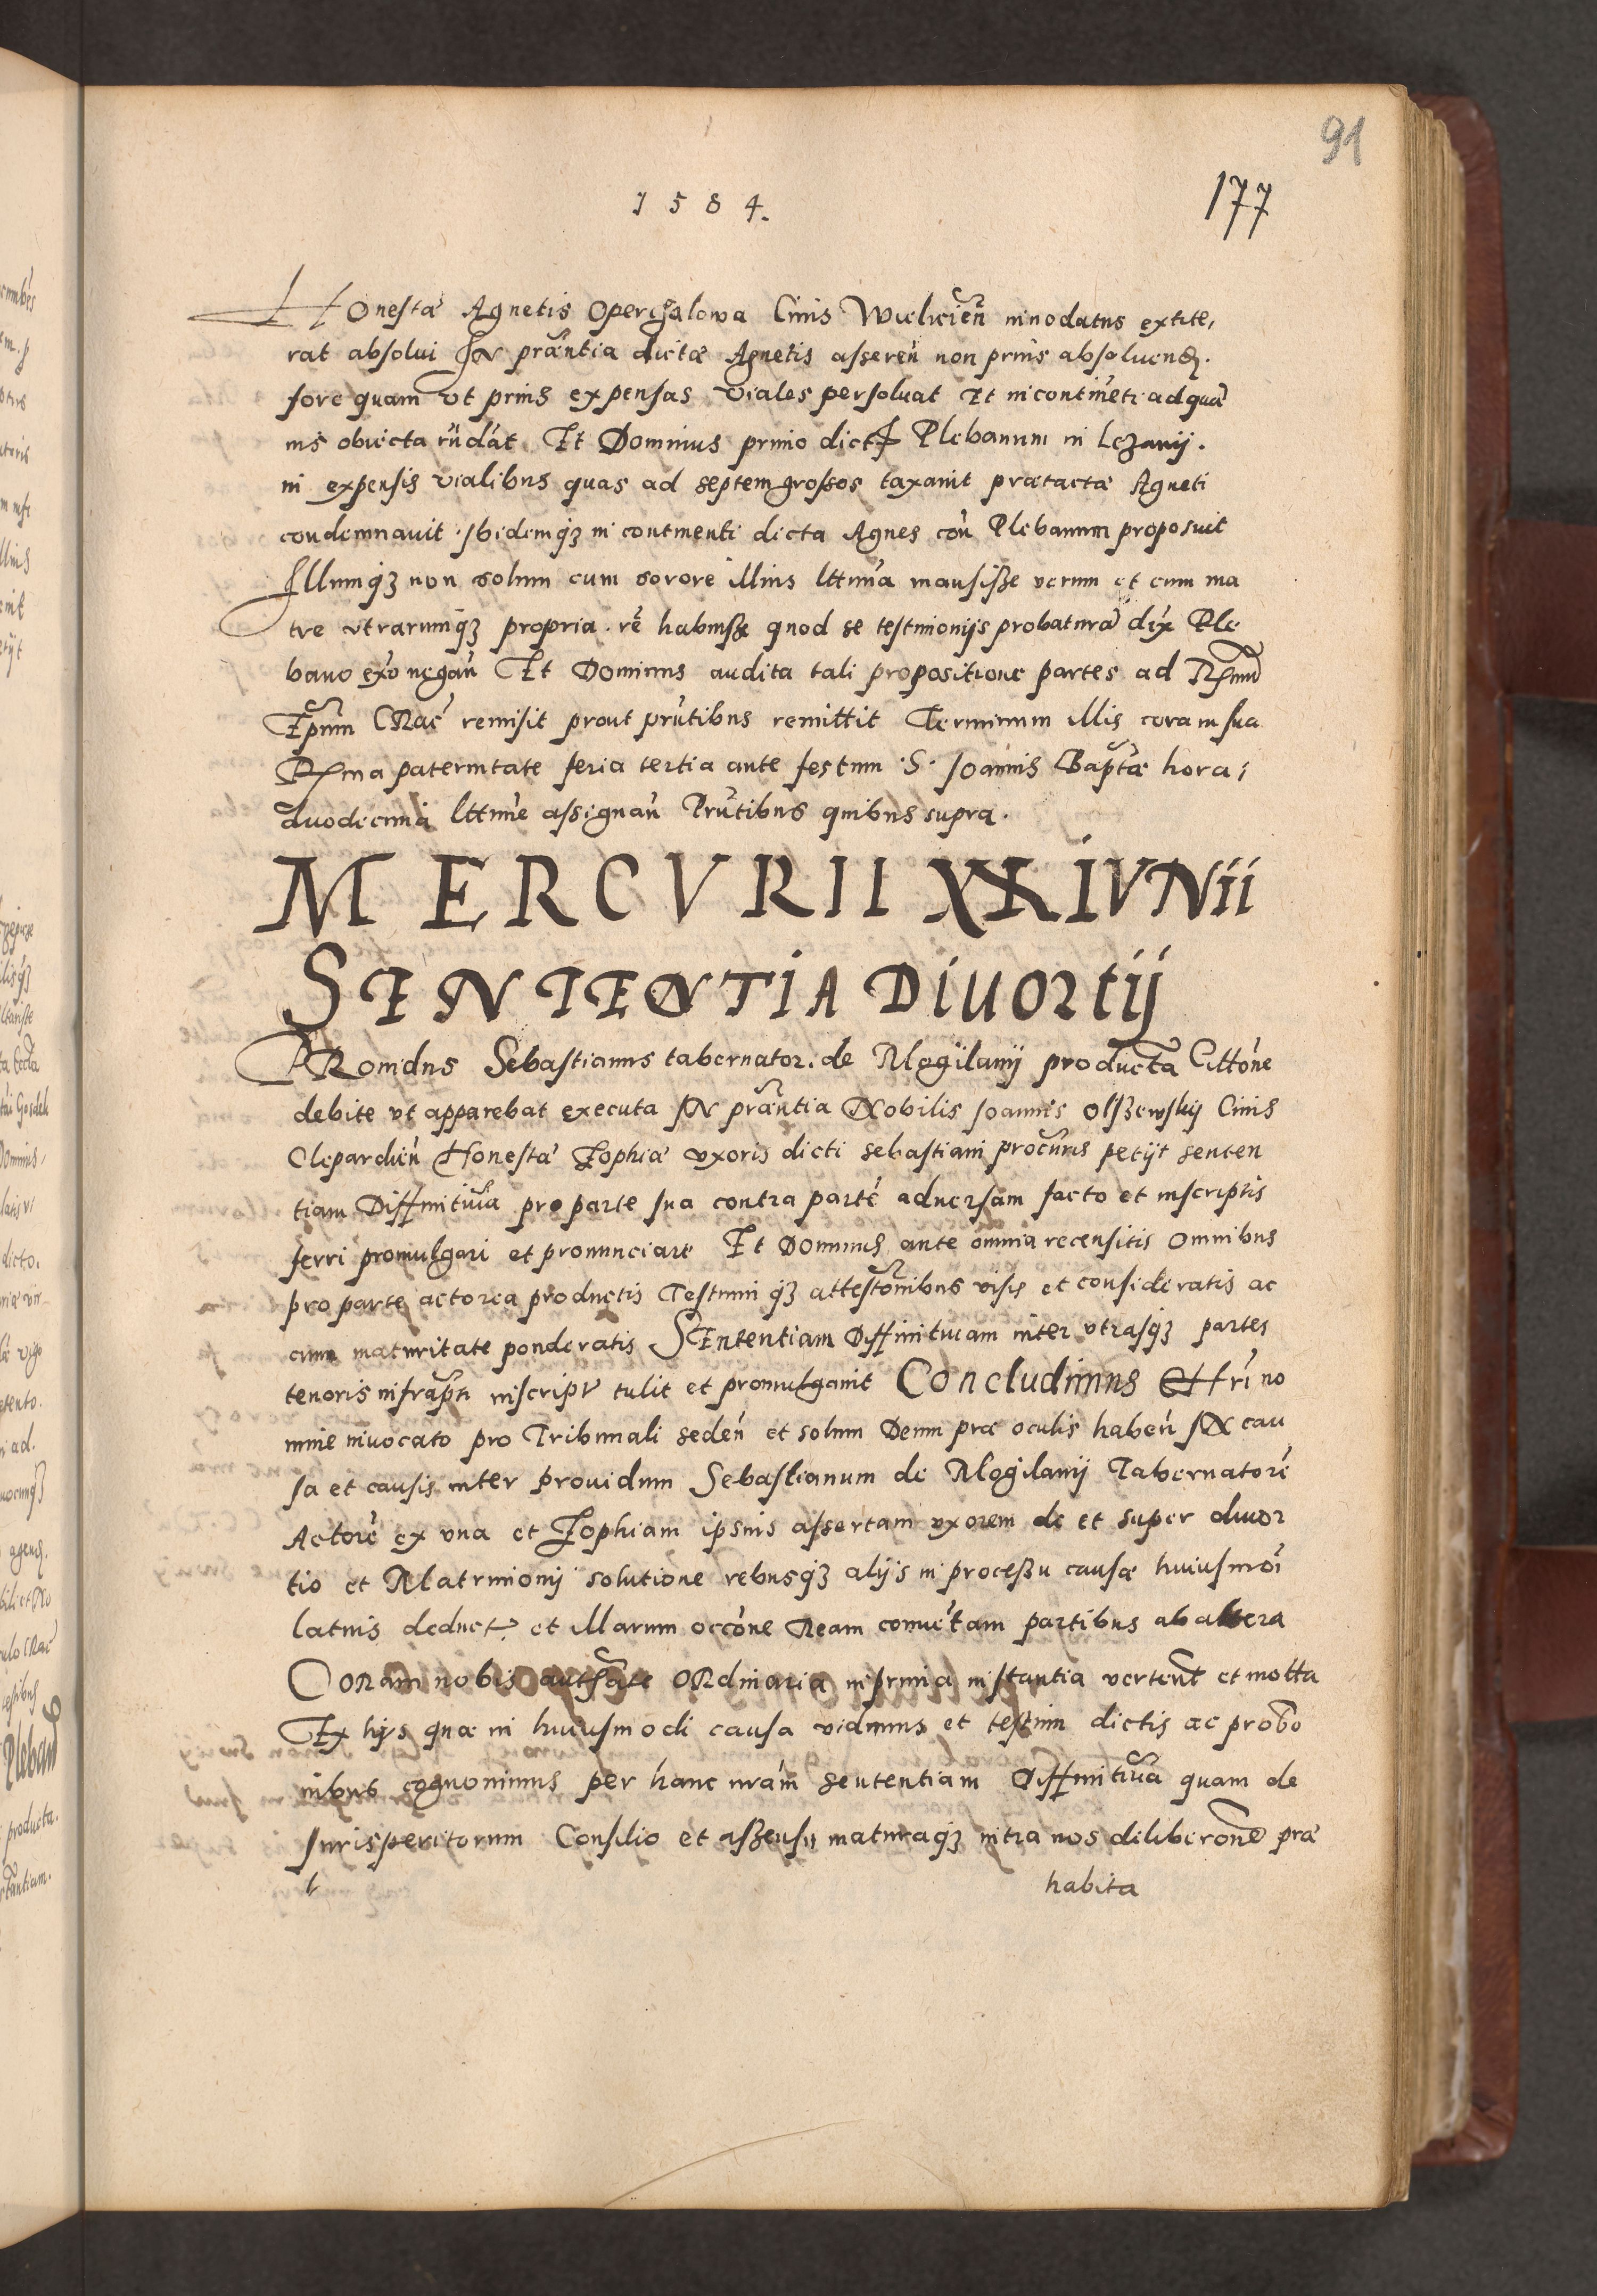 91
1584.
177
HOnestæ Agnetis Operchalowa Civis Wielicień innodatus extite,
rat absolui IN præntia dictæ Agnetis assereń non prius absoluend.
fore quam vt prius expensas viales persoluat Et incontineti ad quā
ius obiecta rñdat Et Dominus primo dict Plebanum in Lezanij.
in expensis vialibus quas ad septem grossos taxavit prætactæ Agneti
condemnauit. Ibidemqz in continenti dicta Agnes coñ Plebanum proposuit
Illumqz non solum cum sorore illius lttima mansisse verum et cum ma
tre vtrarumqz propria. rē habuisse quod se testimonijs probaturā dix Ple
bano exo negañ Et Dominus audita tali propositione partes ad Rsmū
Epum CRac remisit prout prñtibus remittit Terminum illis coram sua
Rsma paternitate feria tertia ante festum .S. Joannis Baptæ hora
duodecima lttime assignañ Prñtibus quibus supra.
MERCVRII XX IVNii
SENTENTIA DIVORtij
PRouidus Sebastianus tabernator. de Mogilanij producta Cittone
debite vt apparebat executa IN præntia Nobilis Joannis Olszewskij Civis
Clepardień Honestæ Zophiæ vxoris dicti sebastiani procuris petijt senten
tiam Diffinitiua pro parte sua contra partē aduersam facto et inscriptis
ferri promulgari et pronunciari Et Dominus ante omnia recensitis Omnibus
pro parte actorea productis Testium qz attestonibus visis et consideratis ac
cum maturitate ponderatis SEntentiam Diffinitiuam inter vtrasqz partes
tenoris infrapti inscript tulit et promulgauit Concludimus Chri no
mine inuocato pro Tribunali sedeń et solum Deum præ oculis habeń IN cau
sa et causis inter prouidum Sebastianum de Mogilanij Tabernatorē
Actorē ex vna et Zophiam ipsius assertam vxorem de et super diuor
tio et Matrimonij solutione rebusqz alijs in processu causæ huiusmoi
latius deduct. et illarum occone Ream conuētam partibus ab altera
CORam nobis authate ORdinaria in prima instantia vertent et motta
Ex hijs quæ in huiusmodi causa vidimus et testium dictis ac probo
nibus cognouimus per hanc nrām sententiam Diffinitiua quam de
Jurisperitorum Consilio et assensu maturaqz intra nos deliberone præ
habita